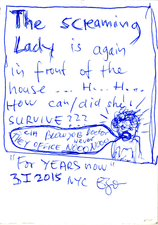 The screaming
Lady is again
in front of the
house ... H... H...
How can/did she
SURVIVE???
Doctor
never
THEY OFFICE
"For YEARS now"
3 I 2015 NYC Ego